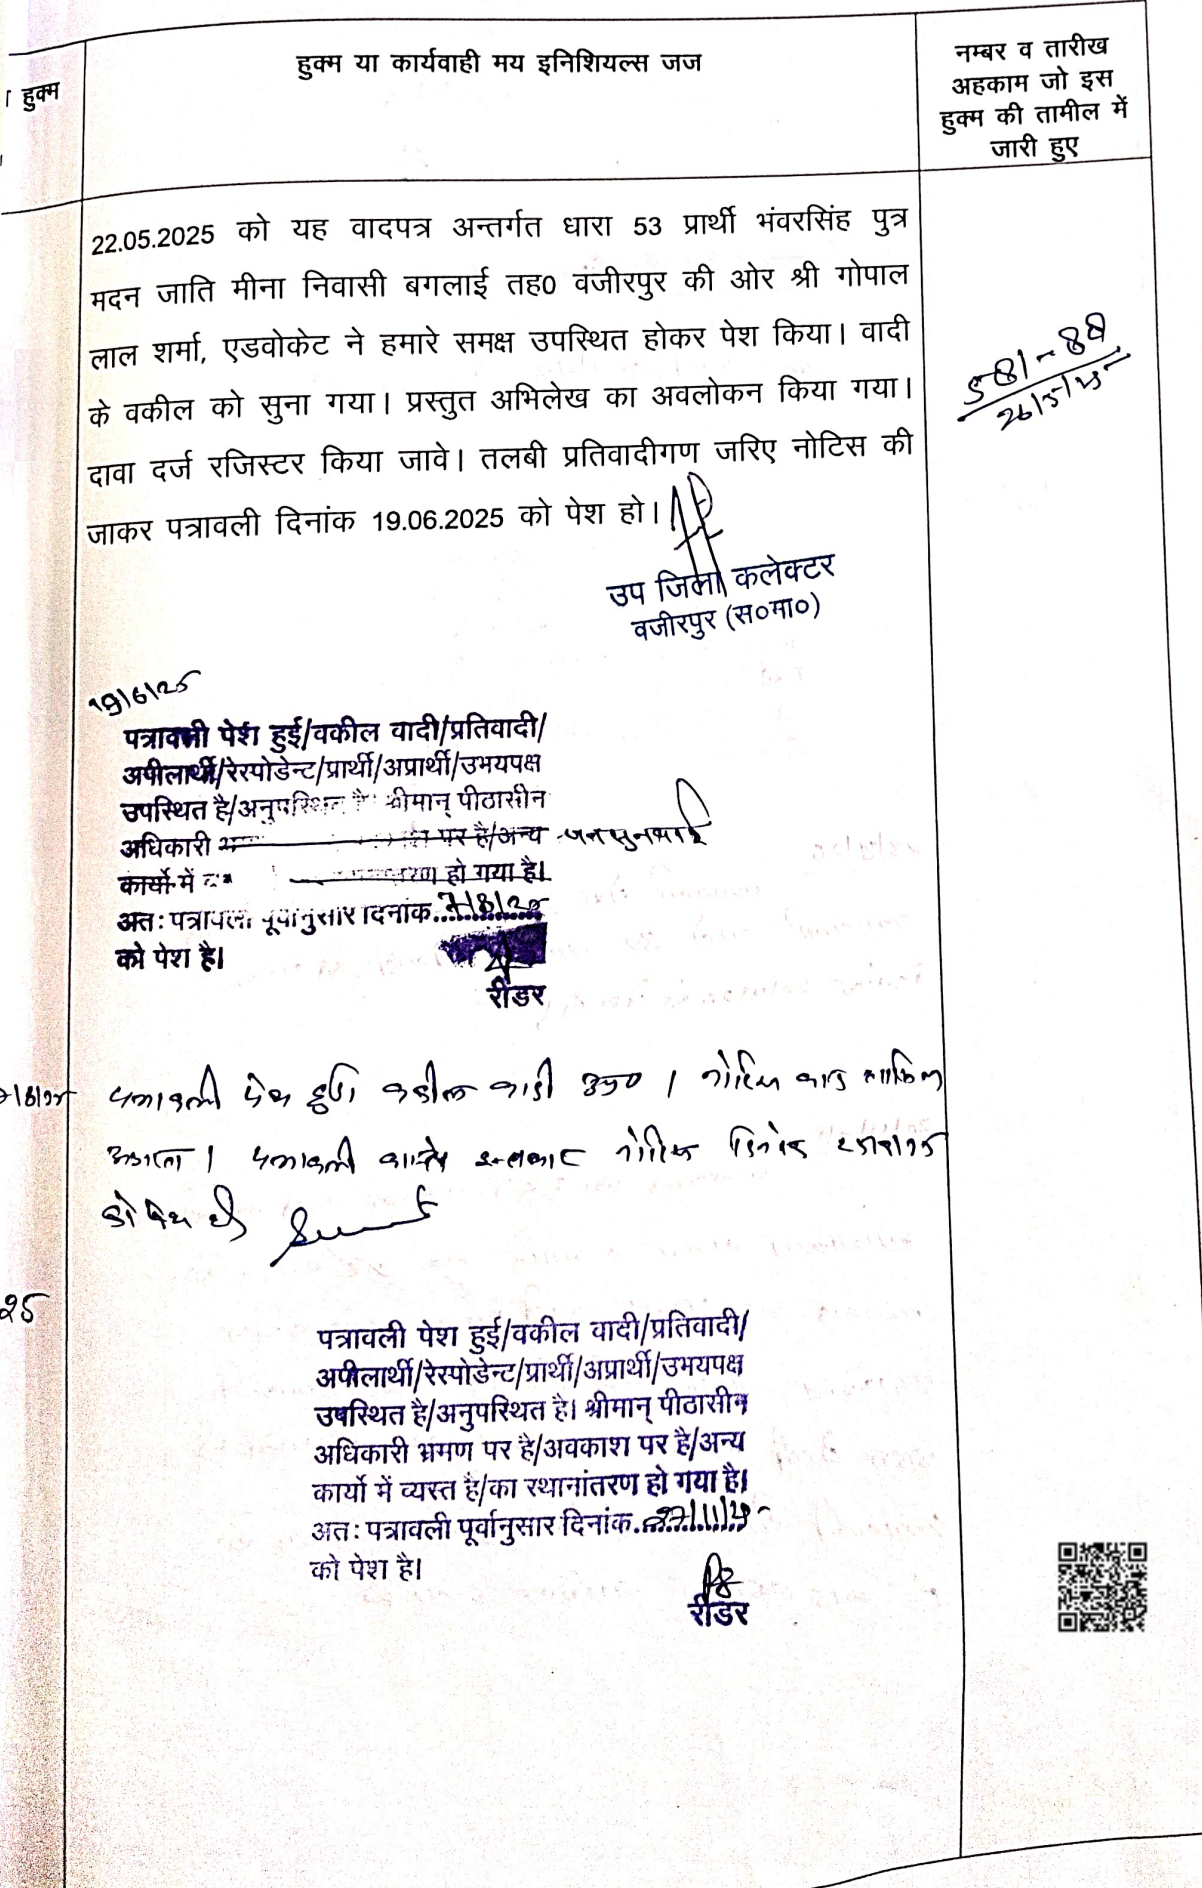 हुक्म
हुक्म या कार्यवाही मय इनिशियल्स जज
नम्बर व तारीख
अहकाम जो इस
हुक्म की तामील में
जारी हुए
22.05.2025 को यह वादपत्र अन्तर्गत धारा 53 प्रार्थी भंवरसिंह पुत्र
मदन जाति मीना निवासी बगलाई तह0 वजीरपुर की ओर श्री गोपाल
लाल शर्मा, एडवोकेट ने हमारे समक्ष उपस्थित होकर पेश किया। वादी
के वकील को सुना गया। प्रस्तुत अभिलेख का अवलोकन किया गया।
दावा दर्ज रजिस्टर किया जावे। तलबी प्रतिवादीगण जरिए नोटिस की
जाकर पत्रावली दिनांक 19.06.2025 को पेश हो।
581-88
26/5/25
उप जिला कलेक्टर
वजीरपुर (स०मा०)
19/6/25
पत्रावली पेश हुई/वकील वादी/प्रतिवादी/
अपीलार्थी/रेस्पोडेन्ट/प्रार्थी/अप्रार्थी/उभयपक्ष
उपस्थित है/अनुपस्थित है। श्रीमान् पीठासीन
अधिकारी पर है/अन्य जनसुनवाई
कार्यो में हो गया है।
अतः पत्रावली पूर्वानुसार दिनांक 7/8/25
को पेश है।
रीडर
पत्रावली पेश हुई वकील वादी उप0। नोटिस बाद तामिल
पत्रावली वास्ते इन्तजार नोटिस दिनांक
को पेश हो
25
पत्रावली पेश हुई/वकील वादी/प्रतिवादी/
अपीलार्थी/रेस्पोडेन्ट/प्रार्थी/अप्रार्थी/उभयपक्ष
उपस्थित है/अनुपस्थित है। श्रीमान् पीठासीन
अधिकारी भ्रमण पर है/अवकाश पर है/अन्य
कार्यो में व्यस्त है/का स्थानांतरण हो गया है।
अतः पत्रावली पूर्वानुसार दिनांक 27/11/25
को पेश है।
रीडर